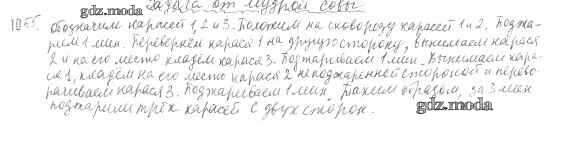 Задача от мудрой совы
1055. Обозначим карасей 1, 2 и 3. Положим на сковороду карасей 1 и 2. Поджа-
рим 1 мин. Перевернём карася 1 на другую сторону, вынимаем карася
2 и на его место кладём карася 3. Поджариваем 1 мин. Вынимаем кара-
ся 1, кладём на его место карася 2 неподжаренной стороной и перево-
рачиваем карася 3. Поджариваем 1 мин. Таким образом, за 3 мин
поджарили трёх карасей с двух сторон.
gdz.moda
gdz.moda